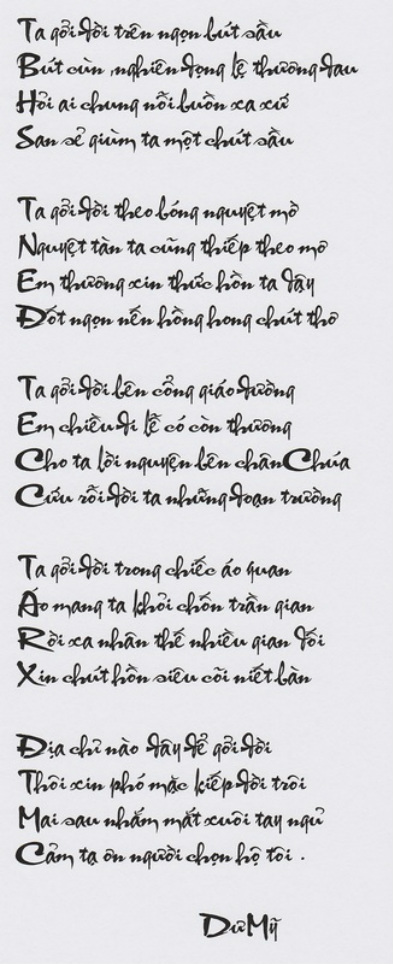 Ta gởi đời trên ngọn bút sầu
Bút cùn, nghiên đọng lệ thương đau
Hỏi ai chung nỗi buồn xa xứ
San sẻ giùm ta một chút sầu
Ta gởi đời theo bóng nguyệt mờ
Nguyệt tàn ta cũng thiếp theo mơ
Em thương xin thức hồn ta dậy
Đốt ngọn nến hồng hong chút thơ
Ta gởi đời bên cổng giáo đường
Em chiều đi lễ có còn thương
Cho ta lời nguyện bên chân Chúa
Cứu rỗi đời ta những đoạn trường
Ta gởi đời trong chiếc áo quan
Áo mang ta khỏi chốn trần gian
Rời xa nhân thế nhiều gian dối
Xin chút hồn siêu cõi niết bàn
Địa chỉ nào đây để gởi đời
Thôi xin phó mặc kiếp đời trôi
Mai sau nhắm mắt xuôi tay ngủ
Cảm tạ ơn người chọn hộ tôi .
Dư Mỹ